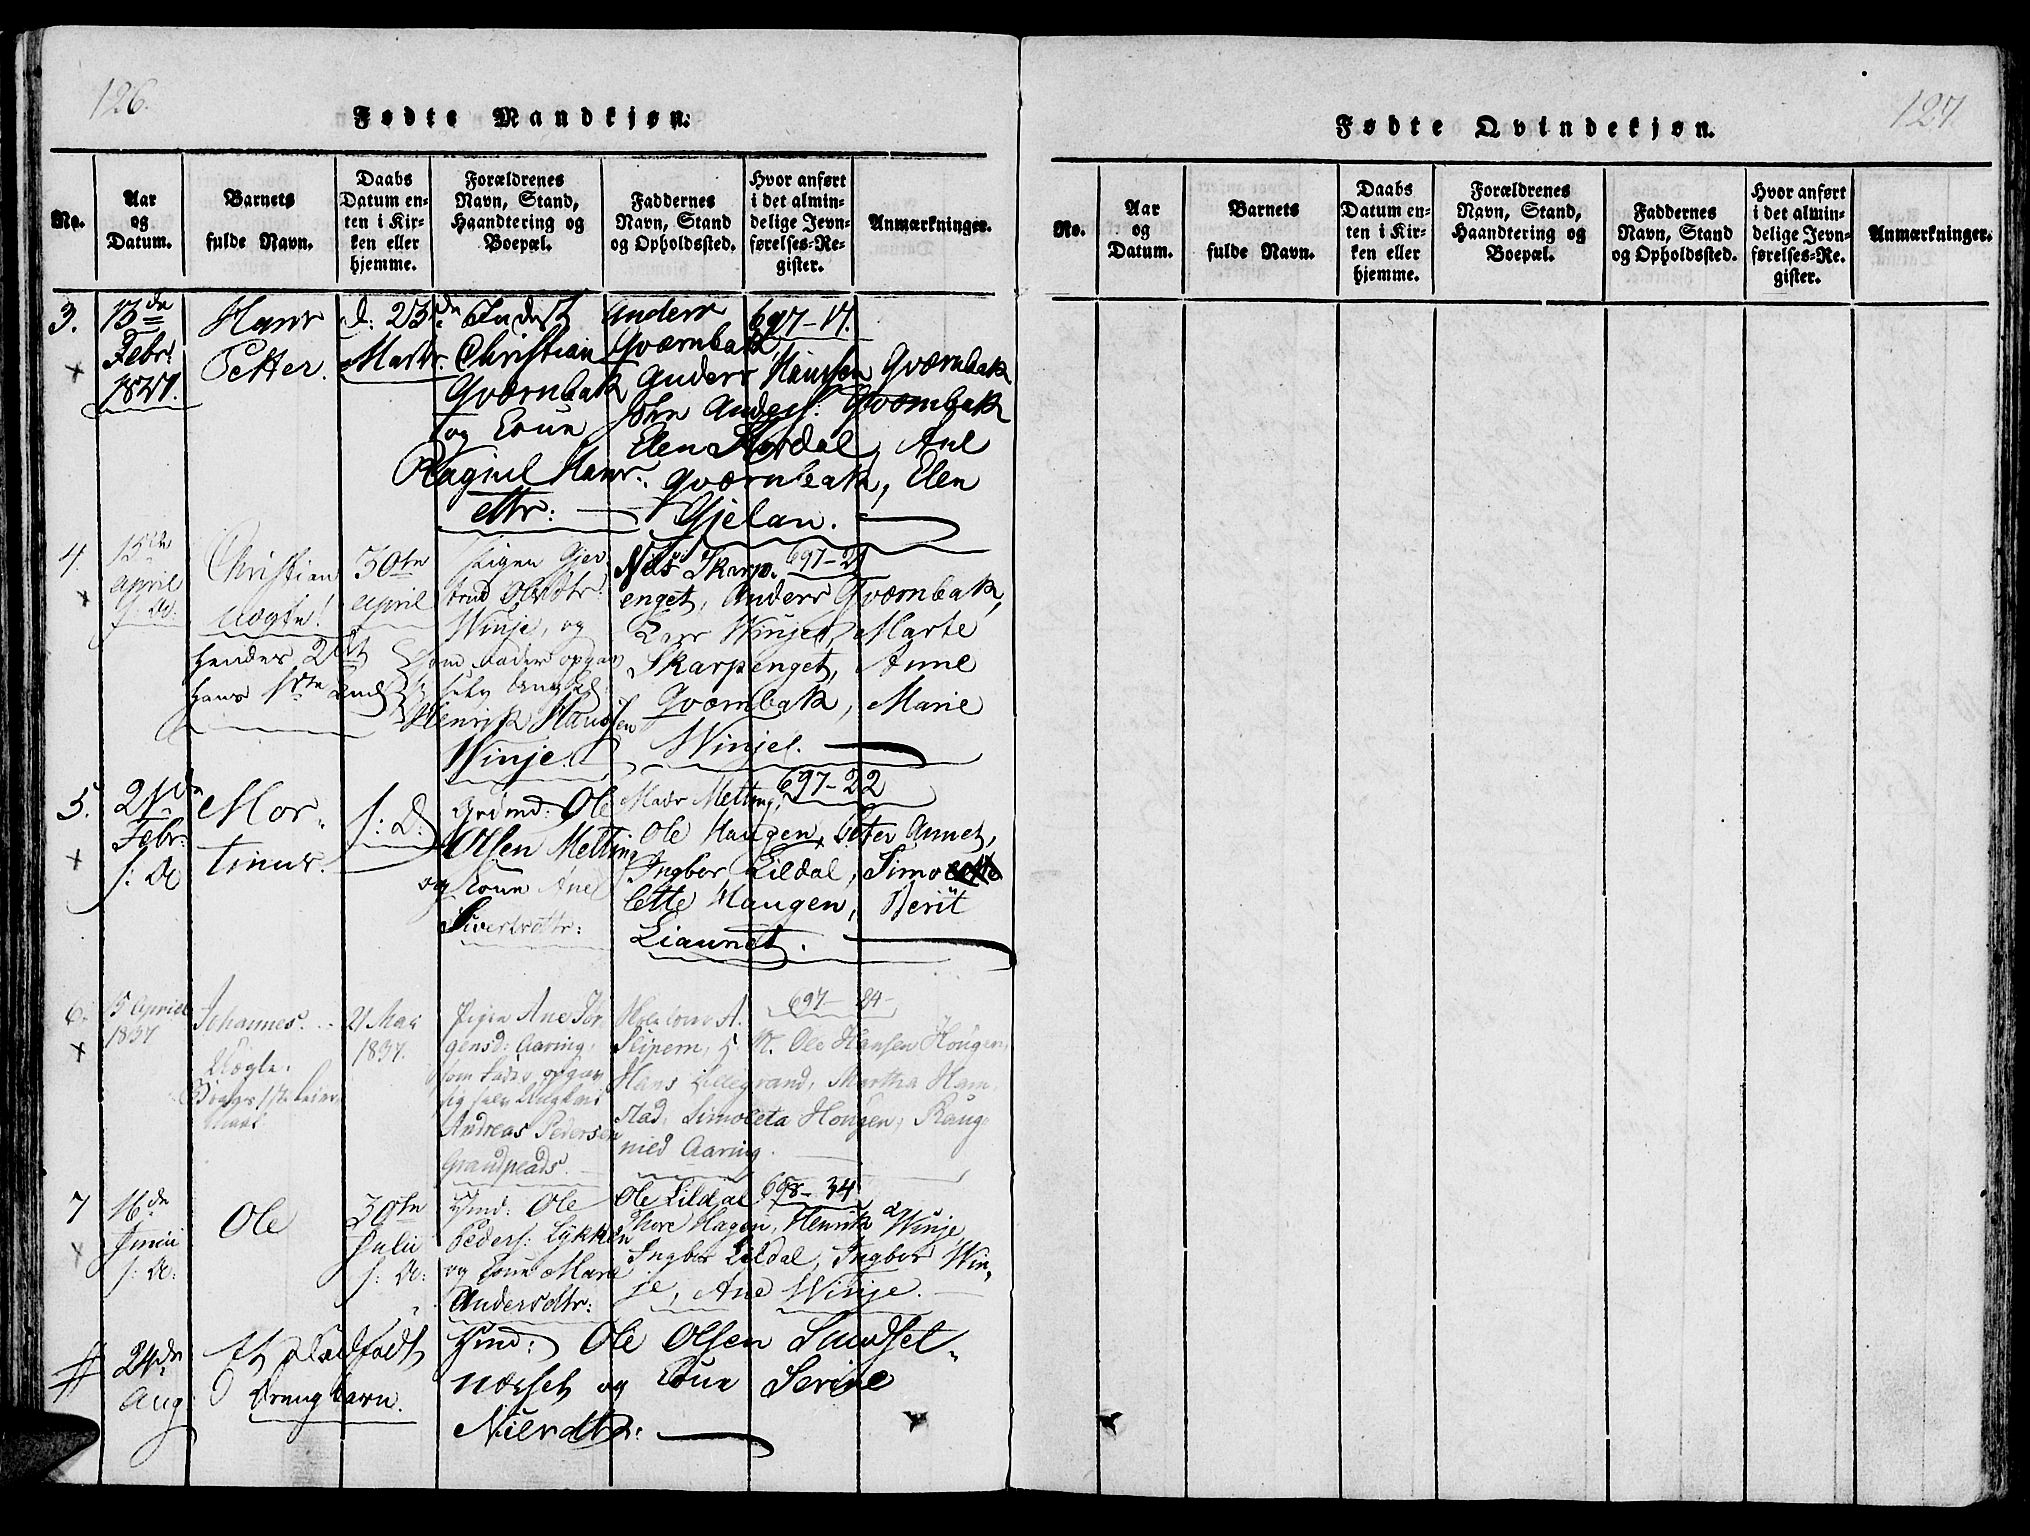 126.
Fødte Mandkjøn.
No.
Aar
og
Datum.
Barnets
fulde Navn.
Daabs
Datum en-
ten i Kir-
ken eller
hjemme.
Forældrenes
Navn, Stand,
Haandtering og
Boepæl.
Faddernes
Navn, Stand
og Opholdssted.
Hvor anført
i det almin-
delige Jevn-
førelses-Re-
gister.
Anmærkninger.
3.
13de
Febr:
Hans
Petter.
d: 23de
Marts.
Christian
Qværnbak
og Kone
Ragnil Hans
dtr:
Anders
Qværnbak,
Anders Hansen Qværnbak
John Anders: Qværnbak
Elen Nordal, Ane
Qværnbak, Elen
Gjelan.
697-17.
4.
15de
April
s: A:
Christian
Uægte!
Hendes 2det
Hans 1ste
30te
April
Pigen Gjer-
trud Olsdtr:
Winje, og
som Fader opgav
sig selv Ungkarl
Henrik Hansen
Winje.
Nils Skarp-
enget, Anders Qværnbak,
Lars Winje, Marte
Skarpenget, Anne
Qværnbak, Marie
Winje.
697-21
5.
21de
Febr:
s: A:
Mor-
tinus.
s: D:
Ole
Olsen Melting
og Kone Ane
Sivertsdtr:
Mads Melting,
Ole Haugen, Peter Aunet,
Ingbor Lildal, Simo
lette Haugen, Berit
Liaunet.
697-22
6.
15 April
1837
Johannes.
Uægte.
21 Mai
1837.
Pigen Ane Jør-
gensd: Aaring,
som Fader opgav
sig selv Ungkarl
Andreas Pedersen
Grandpeads.
A.
Ole Hansen Hougen,
Hans Lillegrand, Martha Ham-
stad, Simoleta Hougen, Raug-
nied Aaring.
697-24-
7
16de
Junii
s: A:
Ole
30te
Julii
s: A:
Hmd: Ole
Peders: Lykken
og Kone Mare
Andersdtr:
Ole Lildal
Thore Hagen, Henrik Winje,
Ingbor Lildal, Ingbor Win-
je, Ane Winje.
698-34
24de
Aug
Et dødfødt
Drengebarn.
Hmd: Ole Olsen Sundset-
næsset og Kone Serine
Nilsdtr:
127
Fødte Qvindekjøn.
No.
Aar
og
Datum.
Barnets
fulde Navn.
Daabs
Datum en-
ten i Kir-
ken eller
hjemme.
Forældrenes
Navn, Stand,
Haandtering og
Boepæl.
Faddernes
Navn, Stand
og Opholdssted.
Hvor anført
i det almin-
delige Jevn-
førelses-Re-
gister.
Anmærkninger.